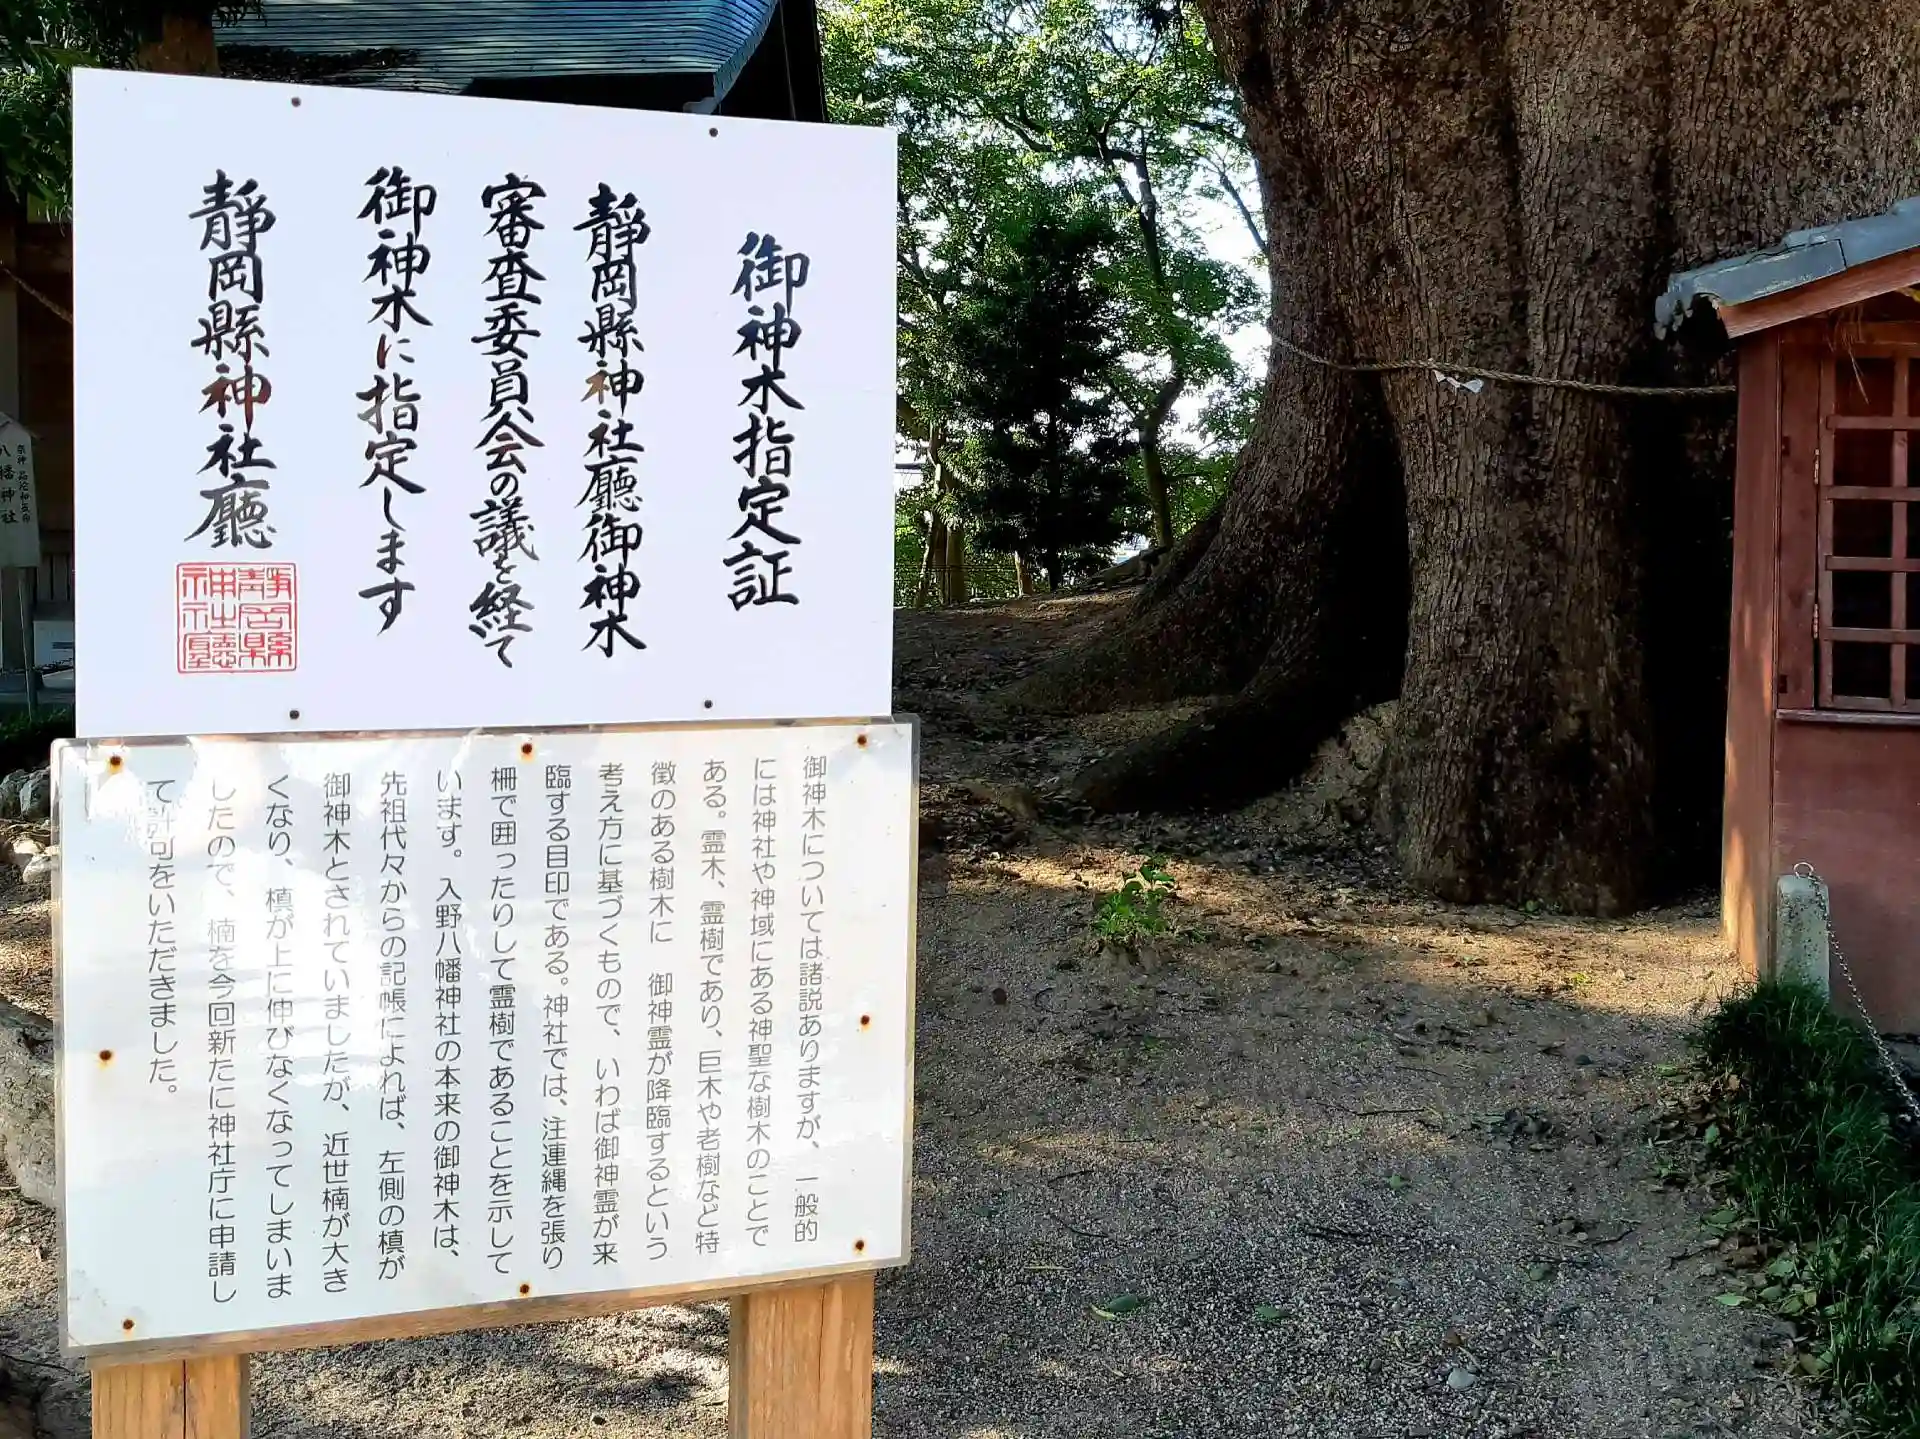 御神木指定証
静岡縣神社廳御神木
審査委員会の議を経て
御神木に指定します
静岡縣神社廳
静岡縣神社廳
御神木については諸説ありますが、一般的
には神社や神域にある神聖な樹木のことで
ある。霊木、霊樹であり、巨木や老樹など特
徴のある樹木に 御神霊が降臨するという
考え方に基づくもので、いわば御神霊が来
臨する目印である。神社では、注連縄を張り
柵で囲ったりして霊樹であることを示して
います。入野八幡神社の本来の御神木は、
先祖代々からの記帳によれば、左側の槙が
御神木とされていましたが、近世楠が大き
くなり、槙が上に伸びなくなってしまいま
したので、楠を今回新たに神社庁に申請し
て許可をいただきました。
八幡神社